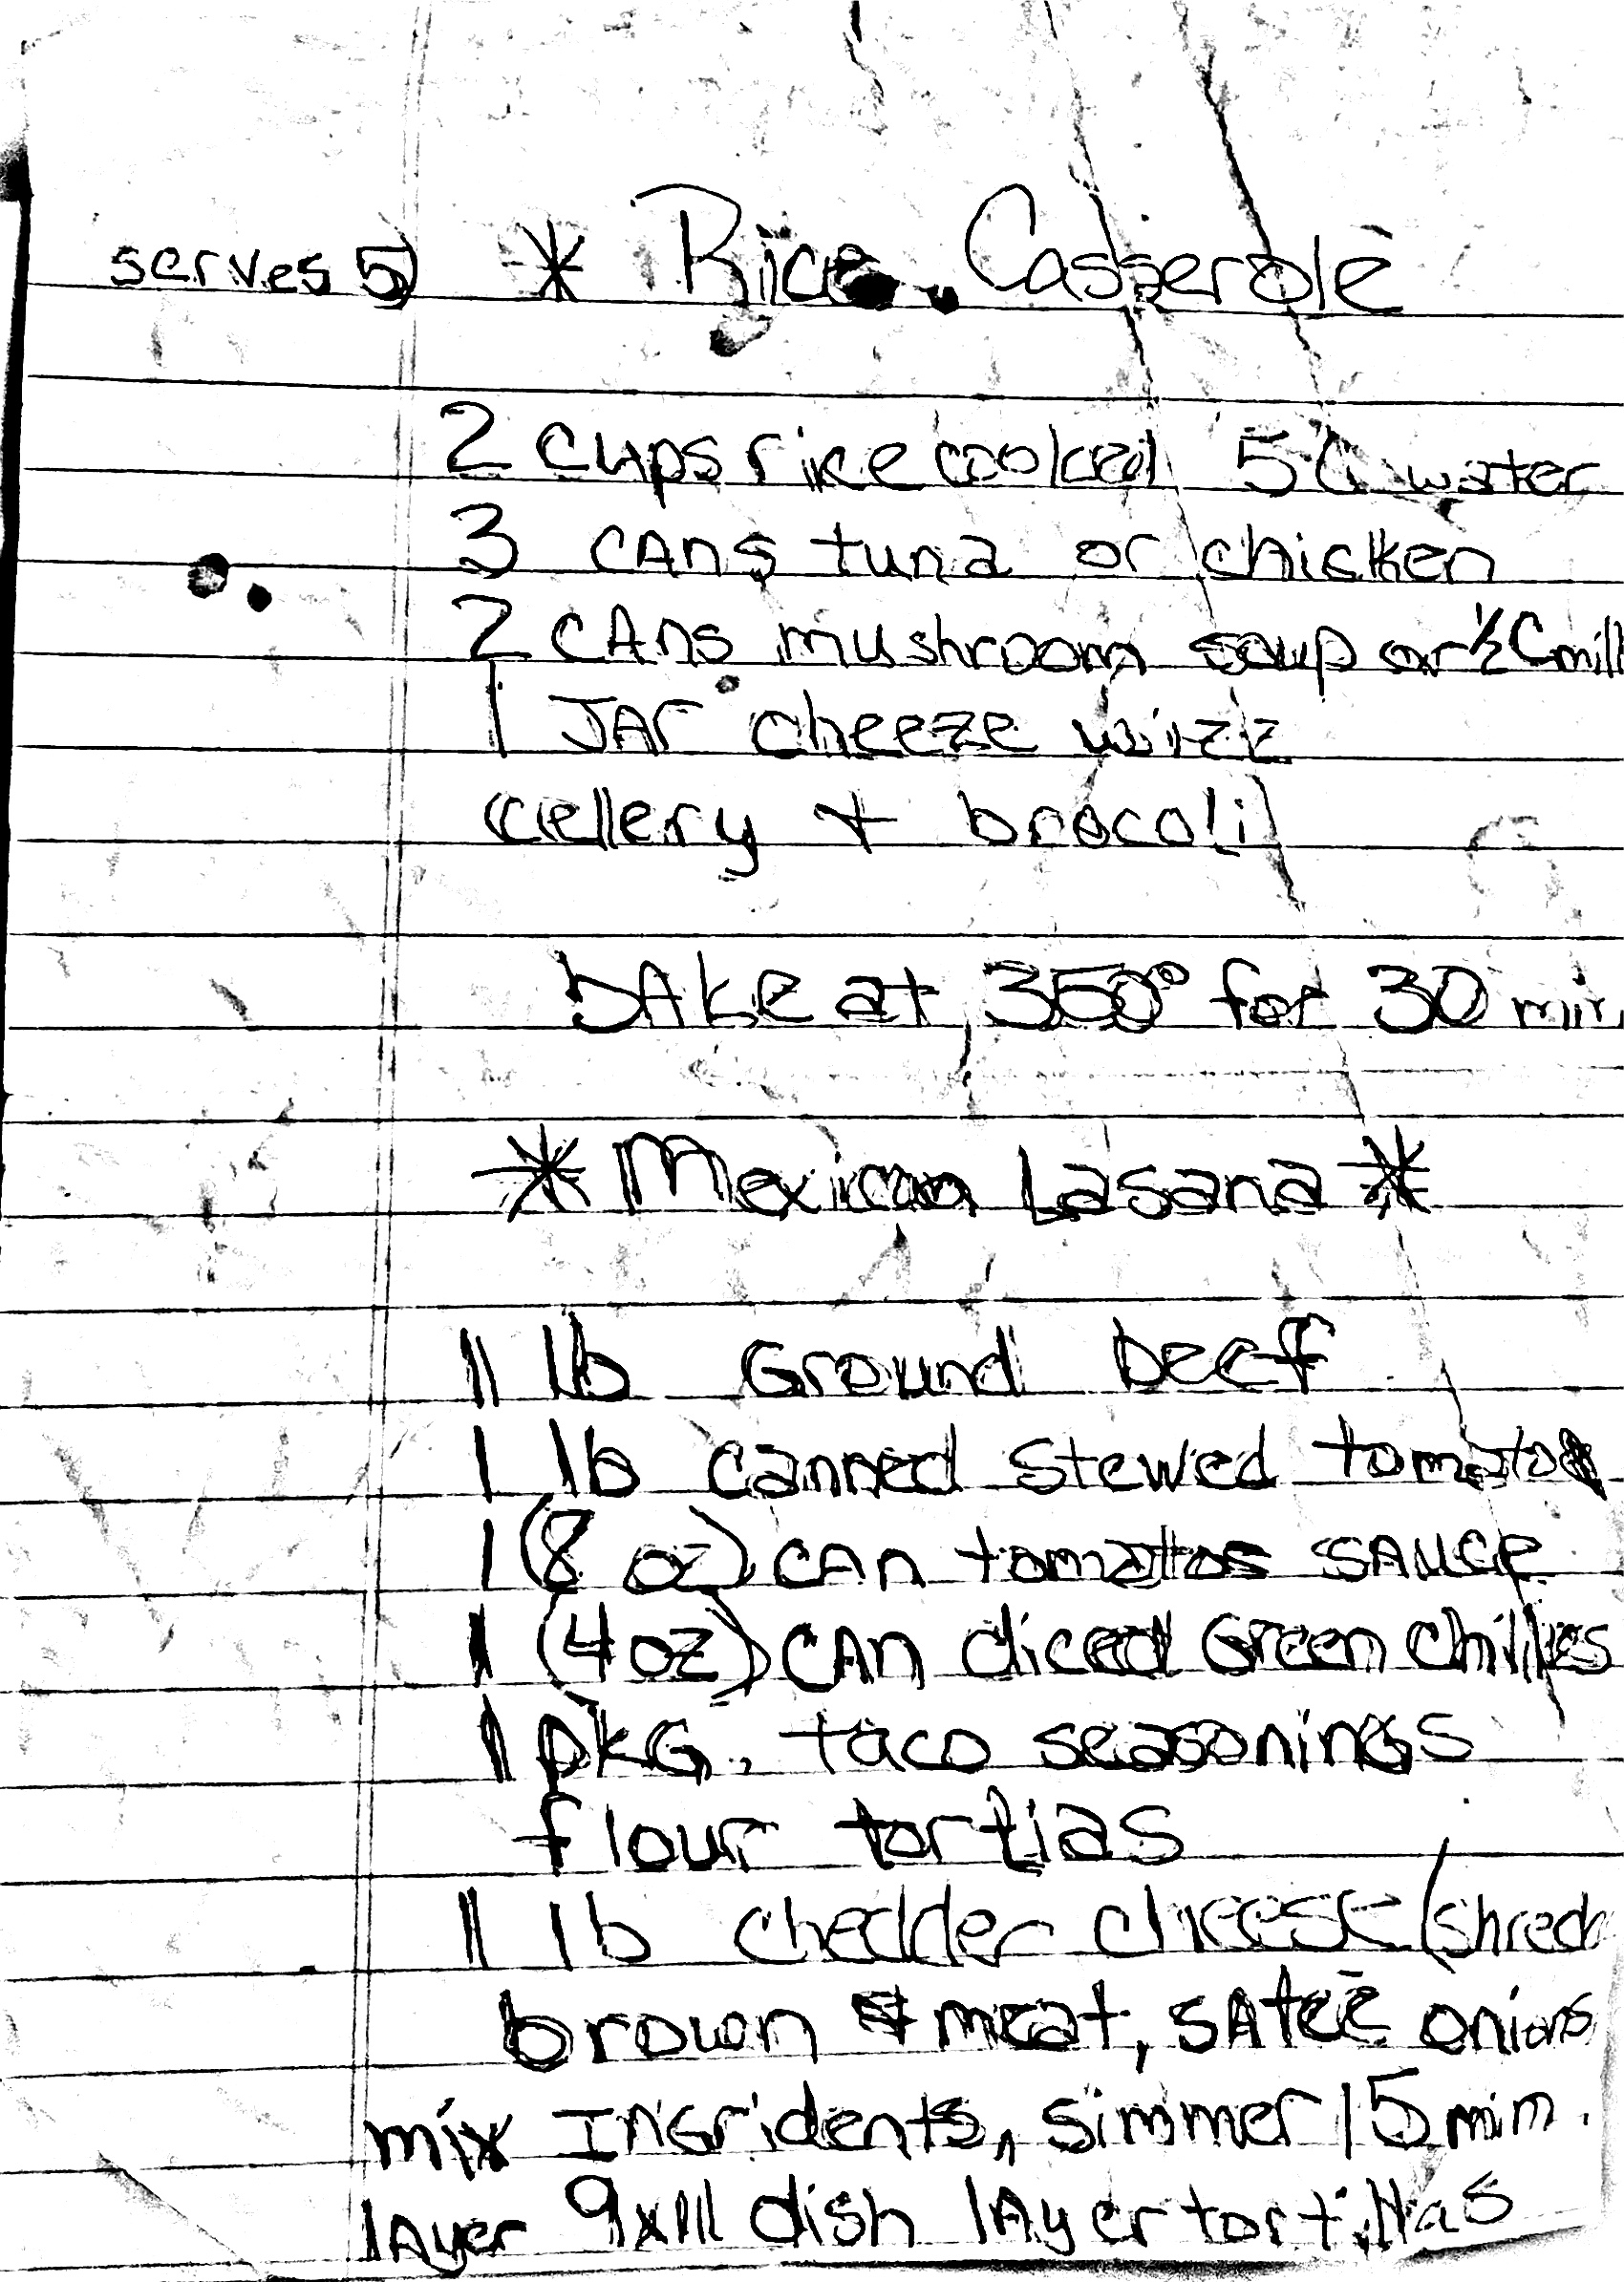 serves 5) * Rice Casserole
2 cups rice cooked 5 C water
3 cans tuna or chicken
2 cans mushroom soup or ½ C milk
1 Jar cheeze wizz
(cellery + brocoli)
bake at 350° for 30 min
* Mexican Lasana *
1 lb Ground beef
1 lb canned stewed tomatoe
1 (8 oz) can tomatos sauce
1 (4 oz) can diced Green chillies
1 pkG. taco seasonings
flour tortias
1 lb chedder cheese (shred
brown meat, satee onions
mix Ingridents, simmer 15 min.
layer 9x11 dish layer tortillas